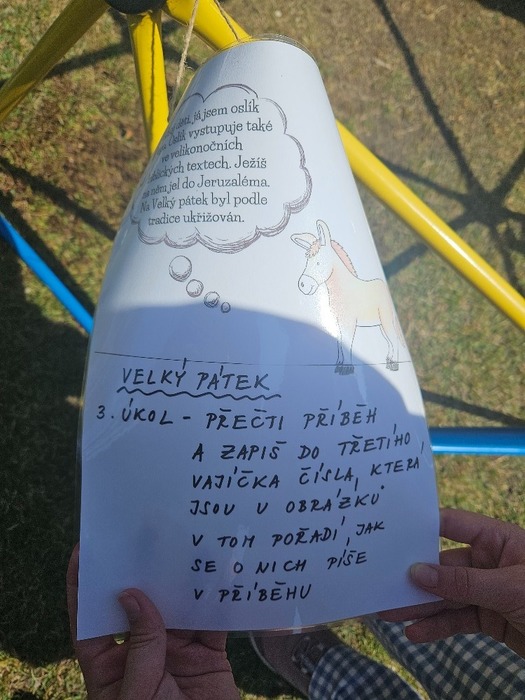 děti, já jsem oslík
Oslík vystupuje také
ve velikonočních
biblických textech. Ježíš
na něm jel do Jeruzaléma.
Na Velký pátek byl podle
tradice ukřižován.
VELKÝ PÁTEK
3. ÚKOL - PŘEČTI PŘÍBĚH
A ZAPIŠ DO TŘETÍHO
VAJÍČKA ČÍSLA, KTERÁ
JSOU U OBRÁZKŮ
V TOM POŘADÍ, JAK
SE O NICH PÍŠE
V PŘÍBĚHU